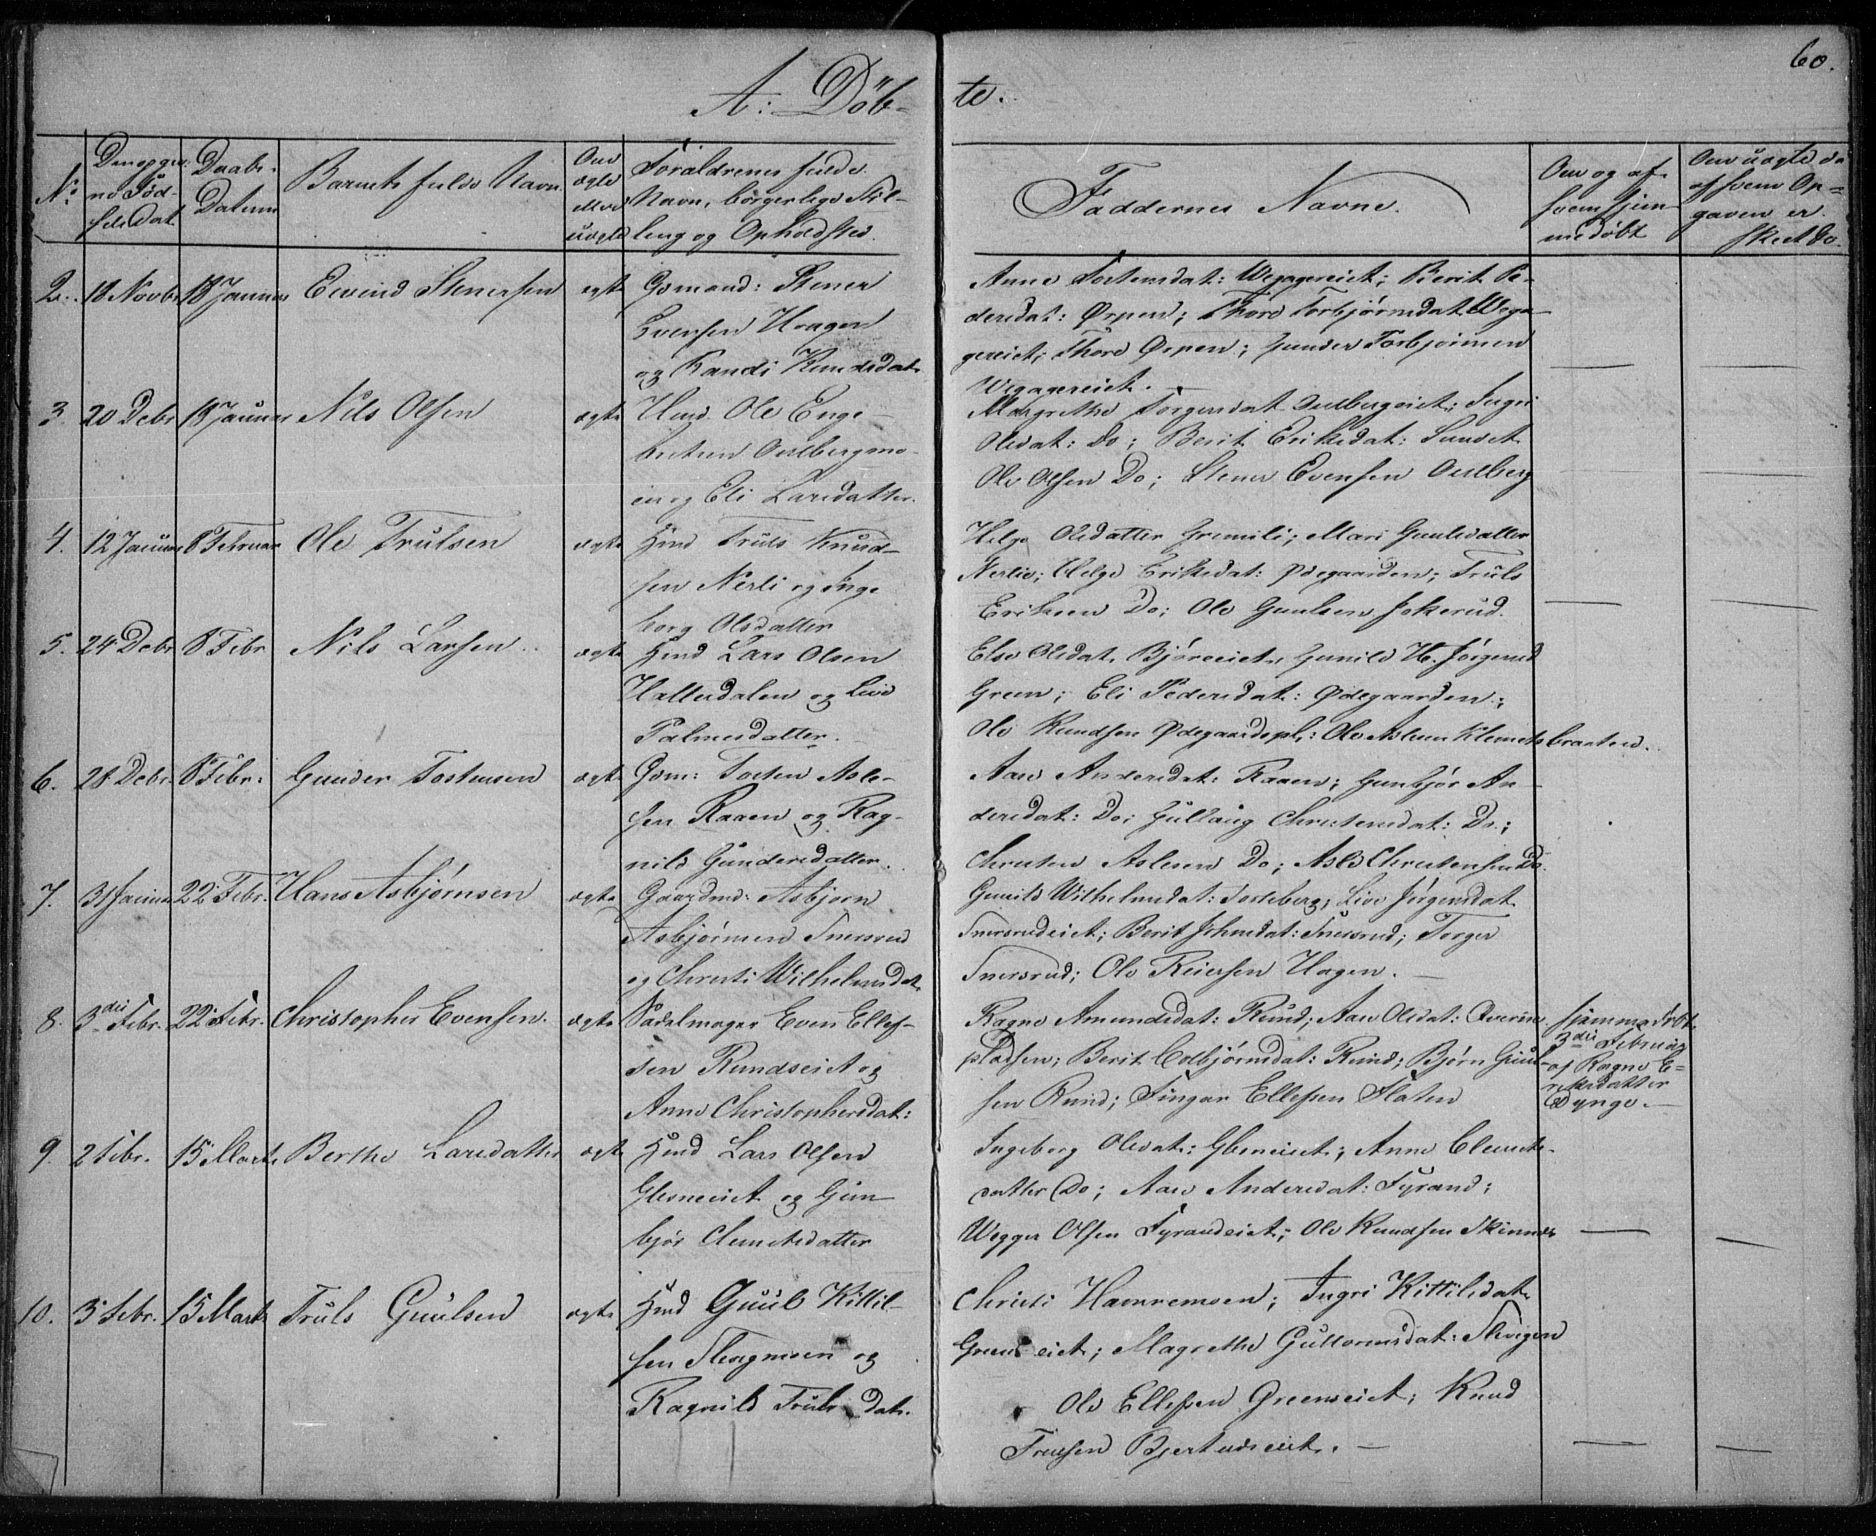 60.
A: Döb-
te.
No
Den opgiv-
ne Fød-
sels Dat
Daabs-
Datum
Barnets fulde Navn
Om
ægte
eller
uægte
Forældrenes fulde
Navn, borgerlige Stil-
ling og Opholdsted.
Faddernes Navne.
Om og af
hvem hjem-
medøbt
Om uægte da
af hvem Op-
gaven er
skeet &c.
2. 18 Novbr 18 Januar Eivind Stenersen egte Gomand: Stener
Evensen Haagen
og Randi Knudsdat.
Anne Tostensdat: Wegagereiet; Berit Pe-
dersdat: Ørpen; Thore Torbjørnsdat Wega-
gereiet; Thore Ørpen; Gunder Torbjørnsen
Wegagereiet. —
3. 20 Debr 18 Januar Nils Olsen ægte Husd. Ole Enge-
bretsen Oulbergmo-
en og Eli Larsdatter.
Margrethe Torgersdat. Oulbergeiet; Ingri
Olsdat: Do; Berit Eriksdat:
Ole Olsen Do; Stener Evensen Oulberg
4. 12 Januar 8 Februar Ole Trulsen ægte Hmd Truls Knud-
sen Nerli og Inge-
borg Olsdatter
Helge Olsdatter Gremili; Mari Guulsdatter
Nerlie; Helge Eriksdat: Ødegaarden; Truls
Eriksen Do; Ole Guulsen Jokerud.
5. 24 Debr 8 Febr Nils Larsen ægte Hmd Lars Olsen
Hallesdalen og Live
Palmesdatter.
Else Olsdat. Bjøreeiet, Gunild H. Jörgensd
Green; Eli Pedersdat: Ødegaarden;
Ole Knudsen Ødegaardspl.: Ole Aslesen Klemetsbraaten.
6. 28 Debr. 8 Febr. Gunder Tostensen ægte Gom: Tosten Asle-
sen Raaen og Rag-
nild Gundersdatter.
Aase Andersdat: Raaen; Gunbjør An-
dersdat: Do; Gullaug Christensdat: Do;
Christen Aslesen Do; Asle Christensen Do.
7. 31 Januar 22 Febr. Hans Asbjørnsen ægte Gaardmd: Asbjørn
Asbjørnsen Snersrud
og Christi Wilhelmsdat.
Gunild Wilhelmsdat: Tosteberg; Live Jörgensdat
Snersrudeiet; Berit Johnsdat: Snersrud; Torger
Snersrud; Ole Reiersen Hagen. —
8. 3die Febr. 22 Febr. Christopher Evensen. ægte Sadelmager Even Ellef-
sen Rundseiet og
Anne Christophersdat:
Ragne Amundsdat: Rund; Aase Olsdat: Qverne
pladsen; Berit Colbjørnsdat: Rund; Bjørn Guul-
sen Rund; Fingar Ellefsen Flaten
Hjemmedöbt
3die Februar
af Ragne E-
riksdatter
Dynge. —
9. 2 Febr. 15 Marts Berthe Larsdatter ægte Hmd Lars Olsen
Glesneeiet og Gun-
bjør Clemetsdatter
Ingeborg Olsdat: Glesneeiet; Anne Clemets-
datter Do; Aase Andersdat: Fyrand;
Wegger Olsen Fyrandeiet; Ole Knudsen Skinnes
10. 5 Febr. 15 Marts Truls Guulsen ægte Hmd Guul Kittil-
sen Skagmoen og
Ragnild Truls Dat.
Christi Hammemoen; Ingri Kittilsdat.
Greenseiet; Magrethe Guttormsdat: Skvigen
Ole Ellefsen Greenseiet; Knud
Truulsen Bjertudseiet. —